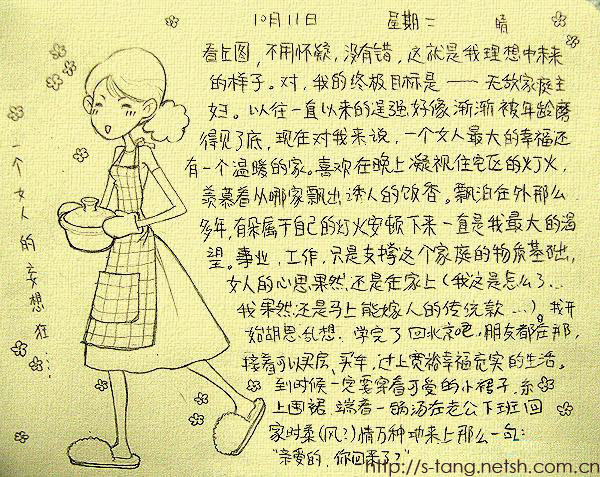 10月11日 星期二 晴
看上图,不用怀疑,没有错,这就是我理想中未来
的样子。对,我的终极目标是——无敌家庭主
妇。以往一直以来的逞强好像渐渐被年龄磨
得见了底,现在对我来说,一个女人最大的幸福还
有一个温暖的家。喜欢在晚上凝视住宅区的灯火,
羡慕着从哪家飘出诱人的饭香。飘泊在外那么
多年,有朵属于自己的灯火安顿下来一直是我最大的渴
望。事业,工作,只是支撑这个家庭的物质基础,
女人的心思果然还是在家上(我这是怎么了...
我果然还是马上能嫁人的传统款...)。我开
始胡思乱想.学完了回北京吧,朋友都在那,
接着可以买房、买车,过上宽裕幸福充实的生活。
到时候一定要穿着可爱的小裙子,系
上围裙.端着一锅汤在老公下班回
家时柔(风?)情万种地来上那么一句:
“亲爱的,你回来了?”
一个女人的妄想狂....
http://s-tang.netsh.com.cn